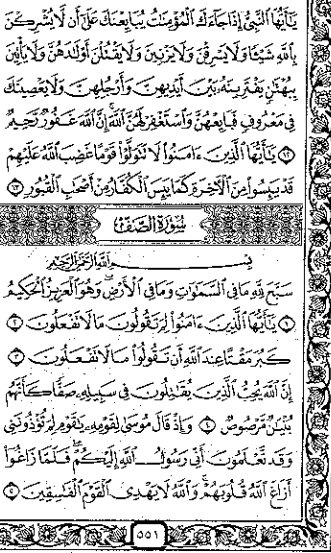 يَٰٓأَيُّهَا ٱلنَّبِيُّ إِذَا جَآءَكَ ٱلْمُؤْمِنَٰتُ يُبَايِعْنَكَ عَلَىٰٓ أَن لَّا يُشْرِكْنَ
بِٱللَّهِ شَيْـًٔا وَلَا يَسْرِقْنَ وَلَا يَزْنِينَ وَلَا يَقْتُلْنَ أَوْلَٰدَهُنَّ وَلَا يَأْتِينَ
بِبُهْتَٰنٍ يَفْتَرِينَهُۥ بَيْنَ أَيْدِيهِنَّ وَأَرْجُلِهِنَّ وَلَا يَعْصِينَكَ
فِي مَعْرُوفٍ فَبَايِعْهُنَّ وَٱسْتَغْفِرْ لَهُنَّ ٱللَّهَ إِنَّ ٱللَّهَ غَفُورٌ رَّحِيمٌ
١٢ يَٰٓأَيُّهَا ٱلَّذِينَ ءَامَنُوا۟ لَا تَتَوَلَّوْا۟ قَوْمًا غَضِبَ ٱللَّهُ عَلَيْهِمْ
قَدْ يَئِسُوا۟ مِنَ ٱلْءَاخِرَةِ كَمَا يَئِسَ ٱلْكُفَّارُ مِنْ أَصْحَٰبِ ٱلْقُبُورِ ١٣
سُورَةُ الصَّفِّ
بِسْمِ ٱللَّهِ ٱلرَّحْمَٰنِ ٱلرَّحِيمِ
سَبَّحَ لِلَّهِ مَا فِي ٱلسَّمَٰوَٰتِ وَمَا فِي ٱلْأَرْضِ وَهُوَ ٱلْعَزِيزُ ٱلْحَكِيمُ
١ يَٰٓأَيُّهَا ٱلَّذِينَ ءَامَنُوا۟ لِمَ تَقُولُونَ مَا لَا تَفْعَلُونَ ٢
كَبُرَ مَقْتًا عِندَ ٱللَّهِ أَن تَقُولُوا۟ مَا لَا تَفْعَلُونَ ٣
إِنَّ ٱللَّهَ يُحِبُّ ٱلَّذِينَ يُقَٰتِلُونَ فِي سَبِيلِهِۦ صَفًّا كَأَنَّهُم
بُنْيَٰنٌ مَّرْصُوصٌ ٤ وَإِذْ قَالَ مُوسَىٰ لِقَوْمِهِۦ يَٰقَوْمِ لِمَ تُؤْذُونَنِي
وَقَد تَّعْلَمُونَ أَنِّي رَسُولُ ٱللَّهِ إِلَيْكُمْ فَلَمَّا زَاغُوٓا۟
أَزَاغَ ٱللَّهُ قُلُوبَهُمْ وَٱللَّهُ لَا يَهْدِي ٱلْقَوْمَ ٱلْفَٰسِقِينَ ٥
٥٥١